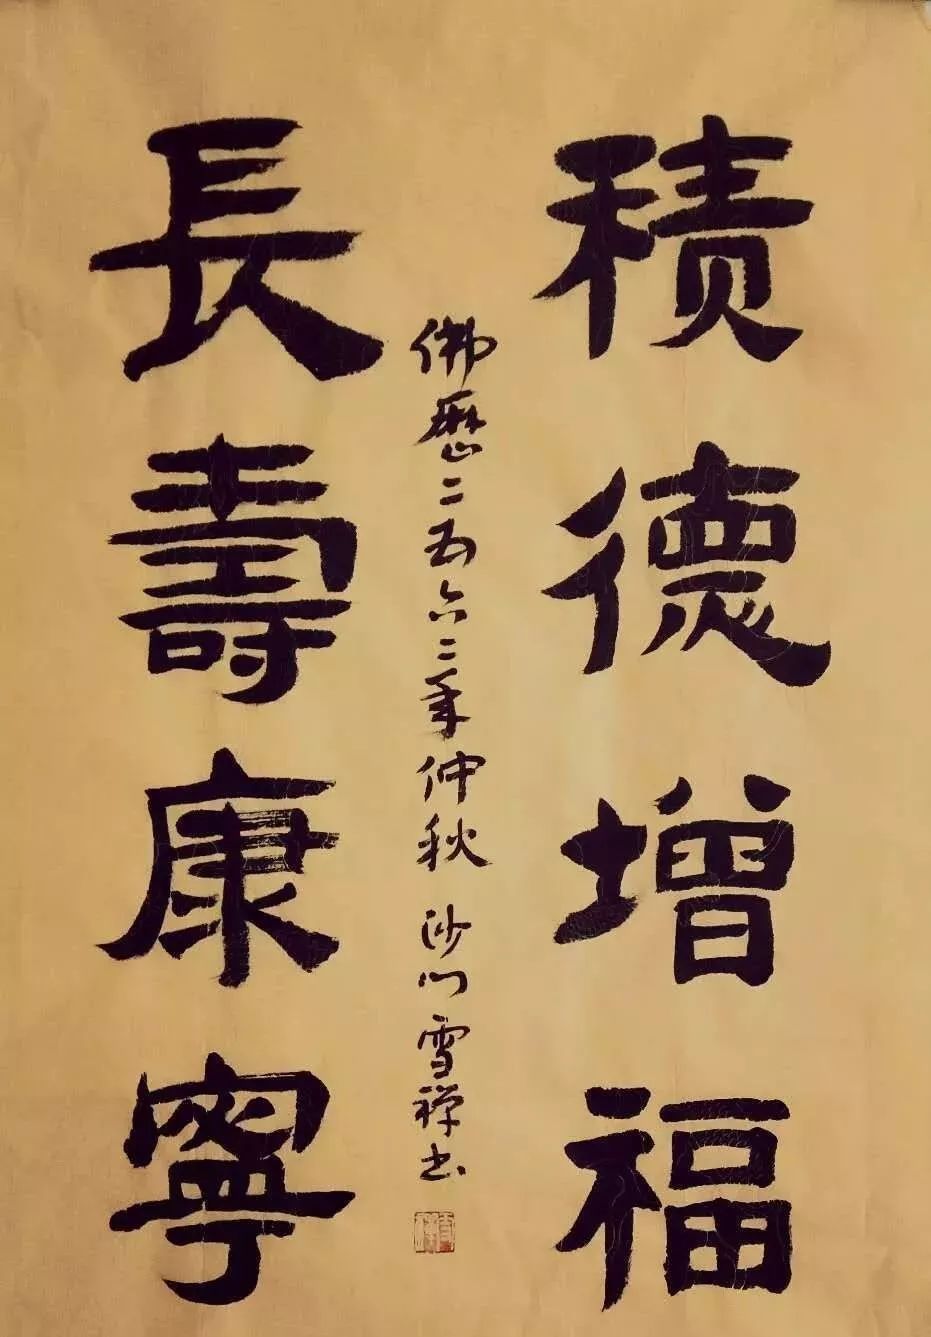 積德增福
長壽康寧
佛歷二五六二年仲秋 沙门雪禅书